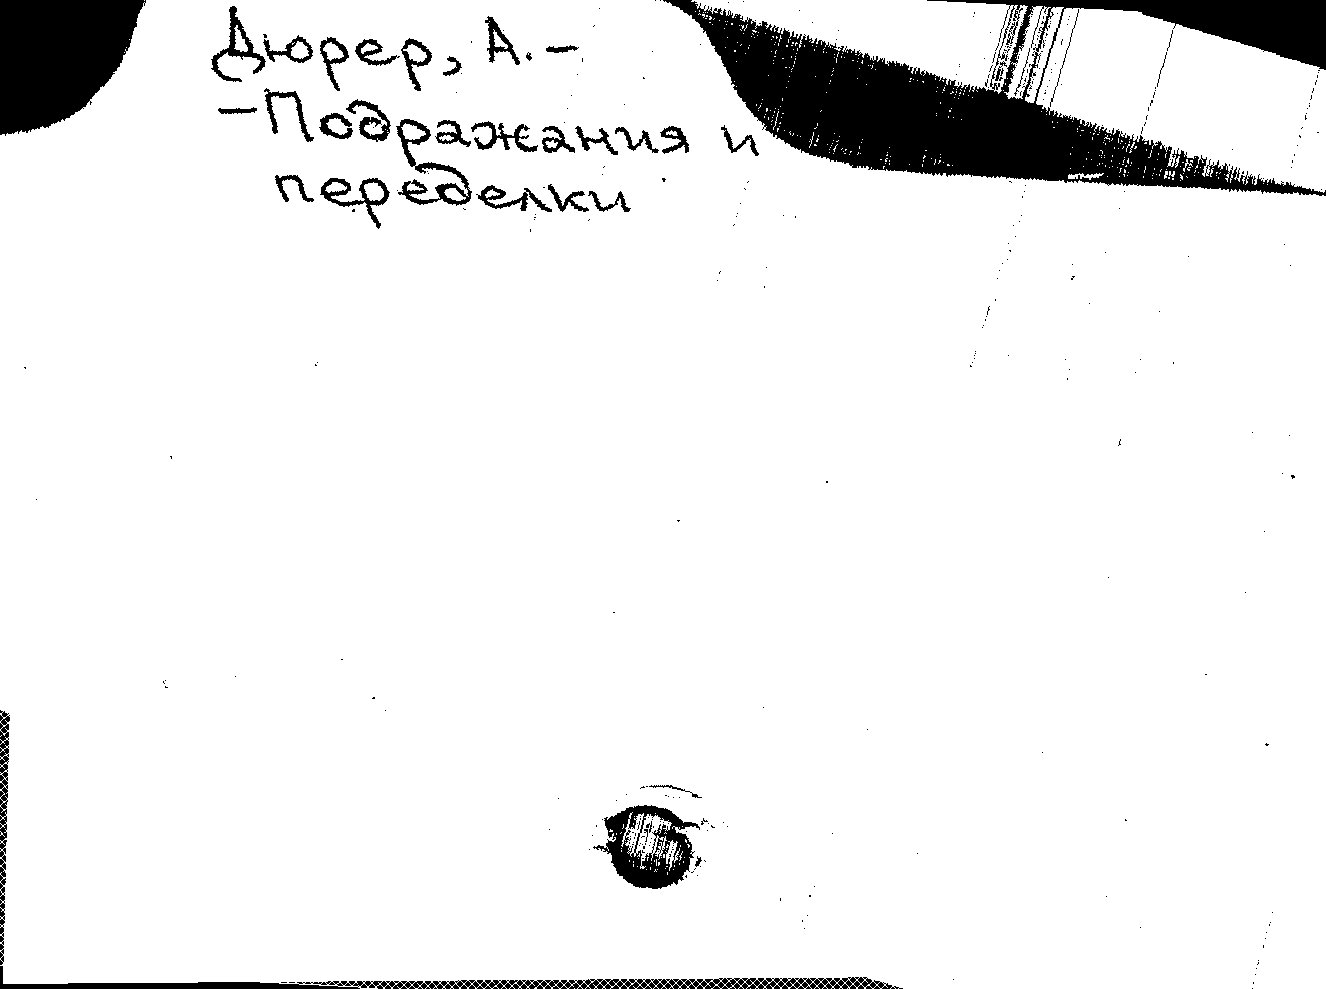 Дюрер, А. –
– Подражания и
переделки